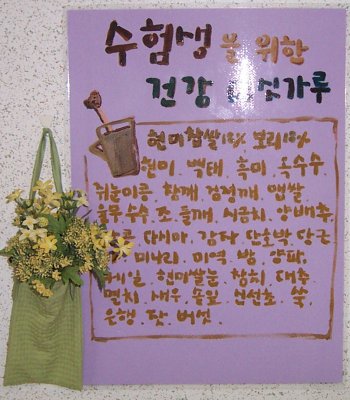 수험생 을 위한
건강 미싯가루
현미찹쌀 보리
현미 백태 흑미 옥수수
쥐눈이콩 참깨 검정깨 맵쌀
율무 수수 조 들깨 시금치 양배추
다시마 감자 단호박 당근
미나리 미역 밤 양파
메밀 현미쌀눈 참치 대추
멸치 새우 솔잎 신선초 쑥
은행 잣 버섯